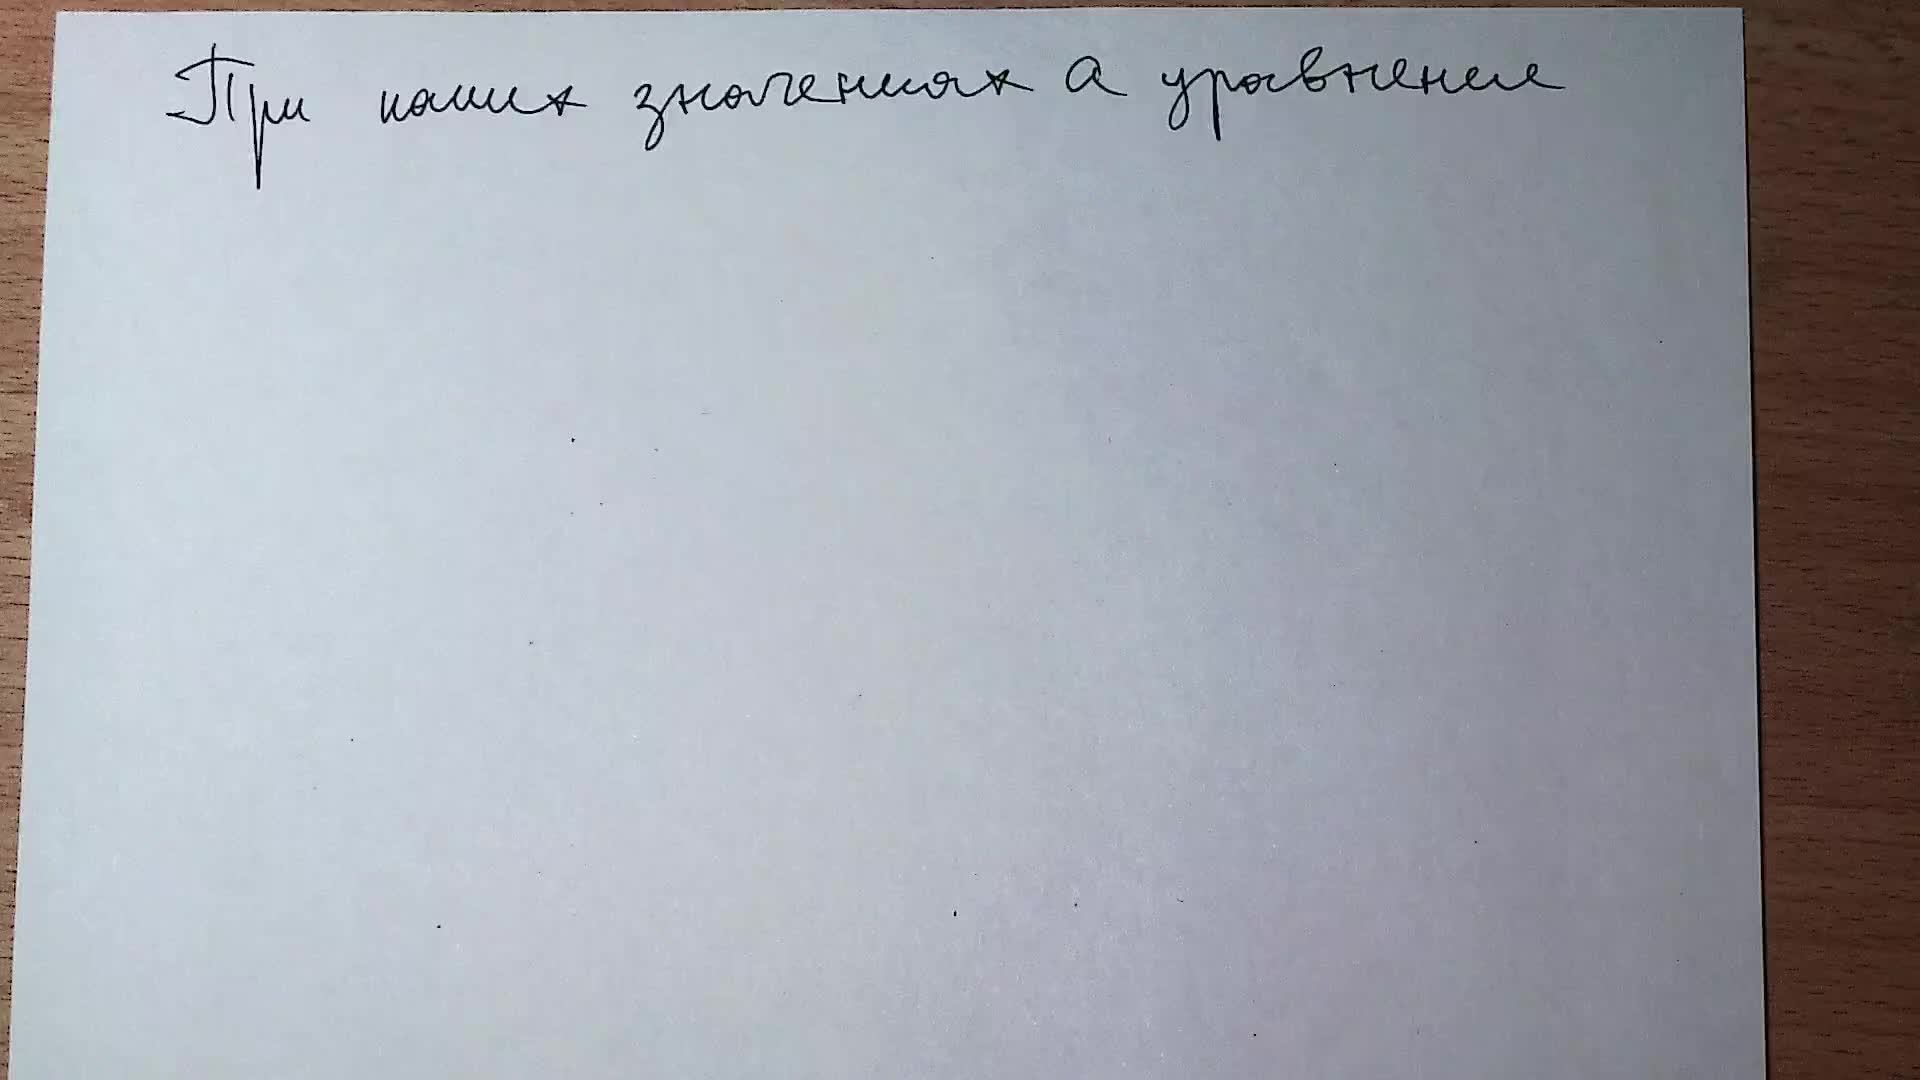 При каких значениях а уравнение